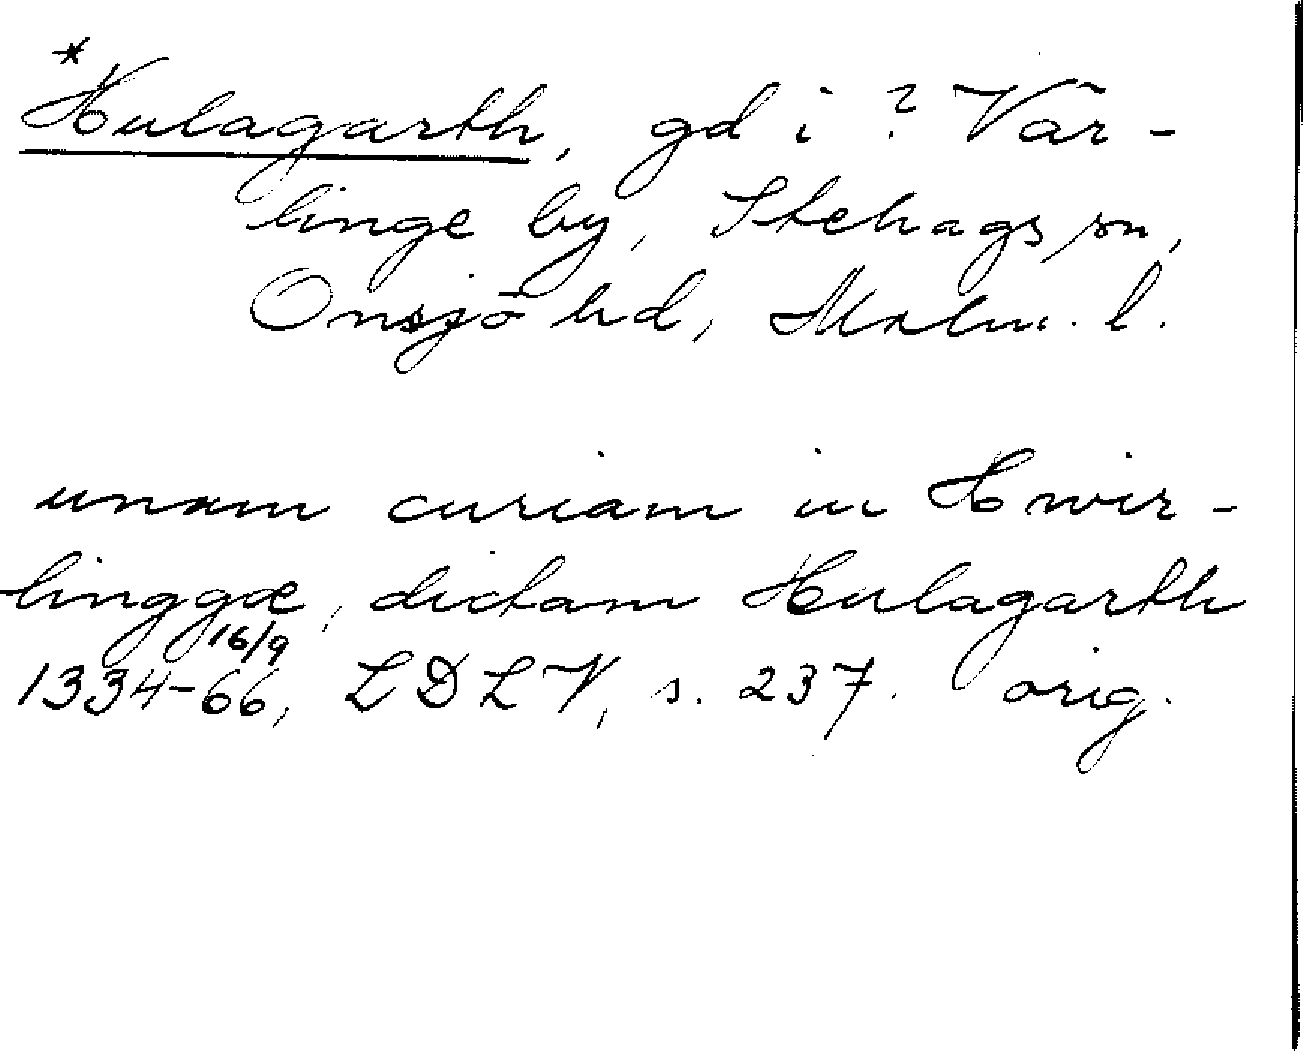 *Hulagarth, gd i ? Vär-
linge by, Stehags sn,
Onsjö hd, Malm. l.
unam curiam in Hwir-
linggæ, dictam Hulagarth
16/9
1334-66, LDLV, s. 237. orig.